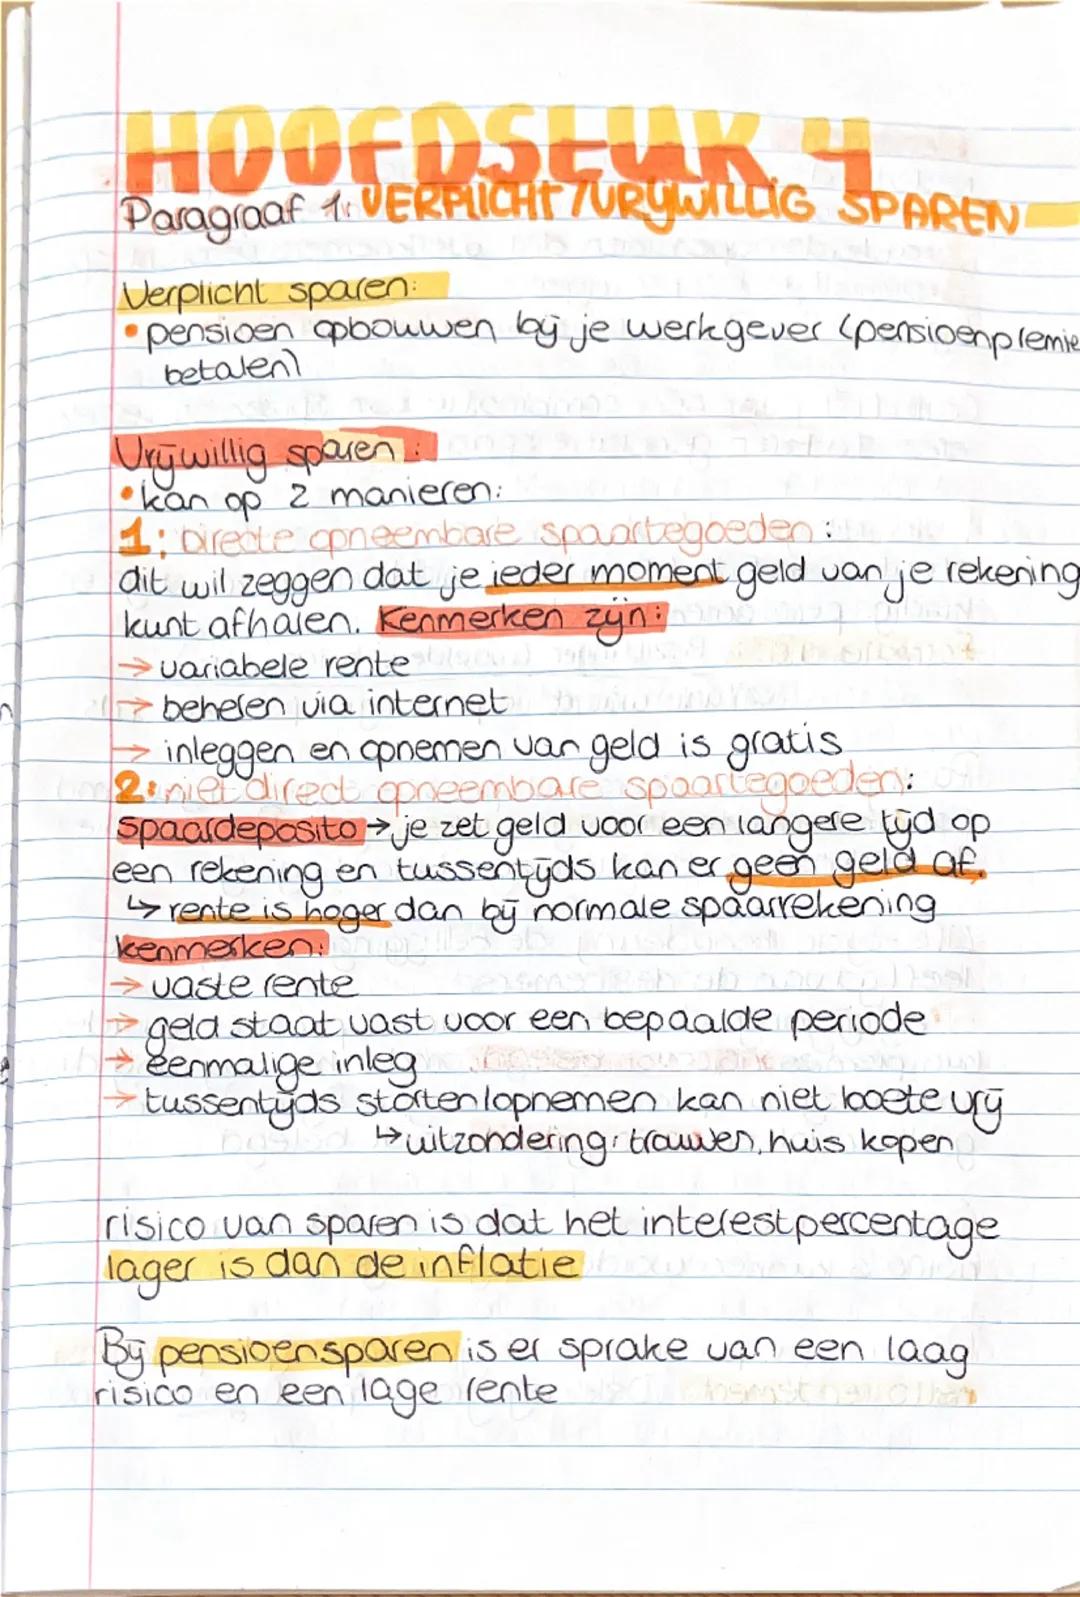 HOOFDSTUK 4
Paragraaf 1: VERPLICHT / VRIJWILLIG SPAREN
Verplicht sparen:
• pensioen opbouwen bij je werkgever (pensioenpremie
betalen)
Vrijwillig sparen:
• kan op 2 manieren:
1: Directe opneembare spaartegoeden:
dit wil zeggen dat je ieder moment geld van je rekening
kunt afhalen. Kenmerken zijn:
→ variabele rente
→ beheren via internet
→ inleggen en opnemen van geld is gratis
2: niet direct opneembare spaartegoeden:
spaardeposito → je zet geld voor een langere tijd op
een rekening en tussentijds kan er geen geld af.
↳ rente is hoger dan bij normale spaarrekening
kenmerken:
→ vaste rente
→ geld staat vast voor een bepaalde periode
→ eenmalige inleg
→ tussentijds storten/opnemen kan niet boete vrij
↳ uitzondering: trouwen, huis kopen
risico van sparen is dat het interestpercentage
lager is dan de inflatie
Bij pensioensparen is er sprake van een laag
risico en een lage rente